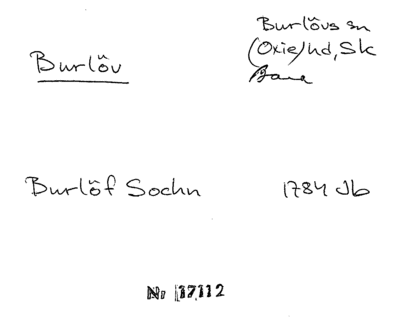 Burlöv
Burlövs sn
(Oxie) hd, Sk
Bara
Burlöf Sochn
1784 Jb
Nr 17112